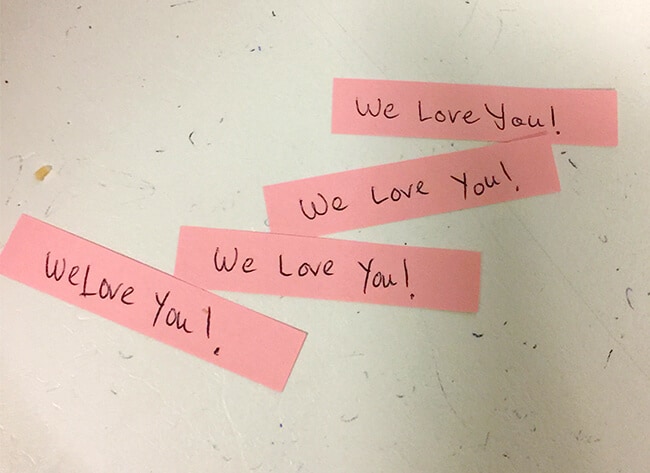 We Love You!
We Love You!
We Love You!
We Love You!